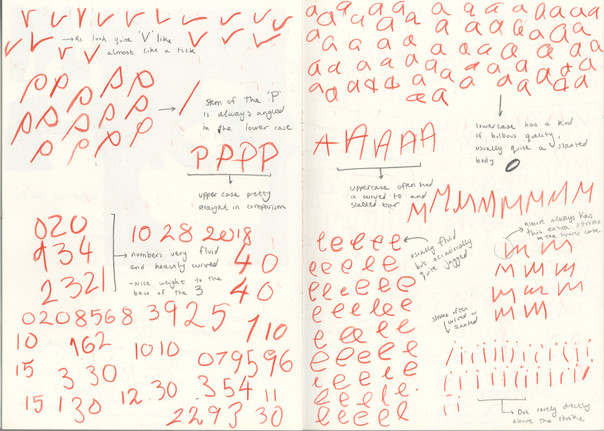 V V V V V V V V
V V V V V V V
Rs look quite 'V' like
almost like a tick
P P P P P
P P P P
P P P P
Stem of the 'P'
is always angled
in the lower case
P P P P
upper case pretty
straight in comparison
020
934
2321
numbers very fluid
and heavily curved
- Nice weight to the
base of the 3
10 28 2018
40
40
0208568 3925
110
10 162 1010 079596
15 3 30 354
15 130 12.30 11
2293 30
a a a a a a a a a a a a
a a a a a a a a a a a
a a a a a a a a a a a
a a a a a a a a a a a
a a a a a a a a a a
a a
lowercase has a kind
of billowy quality.
usually quite a slanted
body
A A A A A
uppercase often had
a curved to and
slabbed bar
M M M M M M M M M
almost always has
this extra stroke
in the lower case
m m m
m m m
m m m
m m
e e e e e
e e e e e
e e e e e
e e e e e
e e e e e
e e e e e
e e e e e
e e e e e
e e e e e
usually fluid
but occasionally
quite jagged
stroke often
curved or
slanted
i i i i i i i i i i i
i i i i i i i i i i i
i i
Dot rarely directly
above the stroke